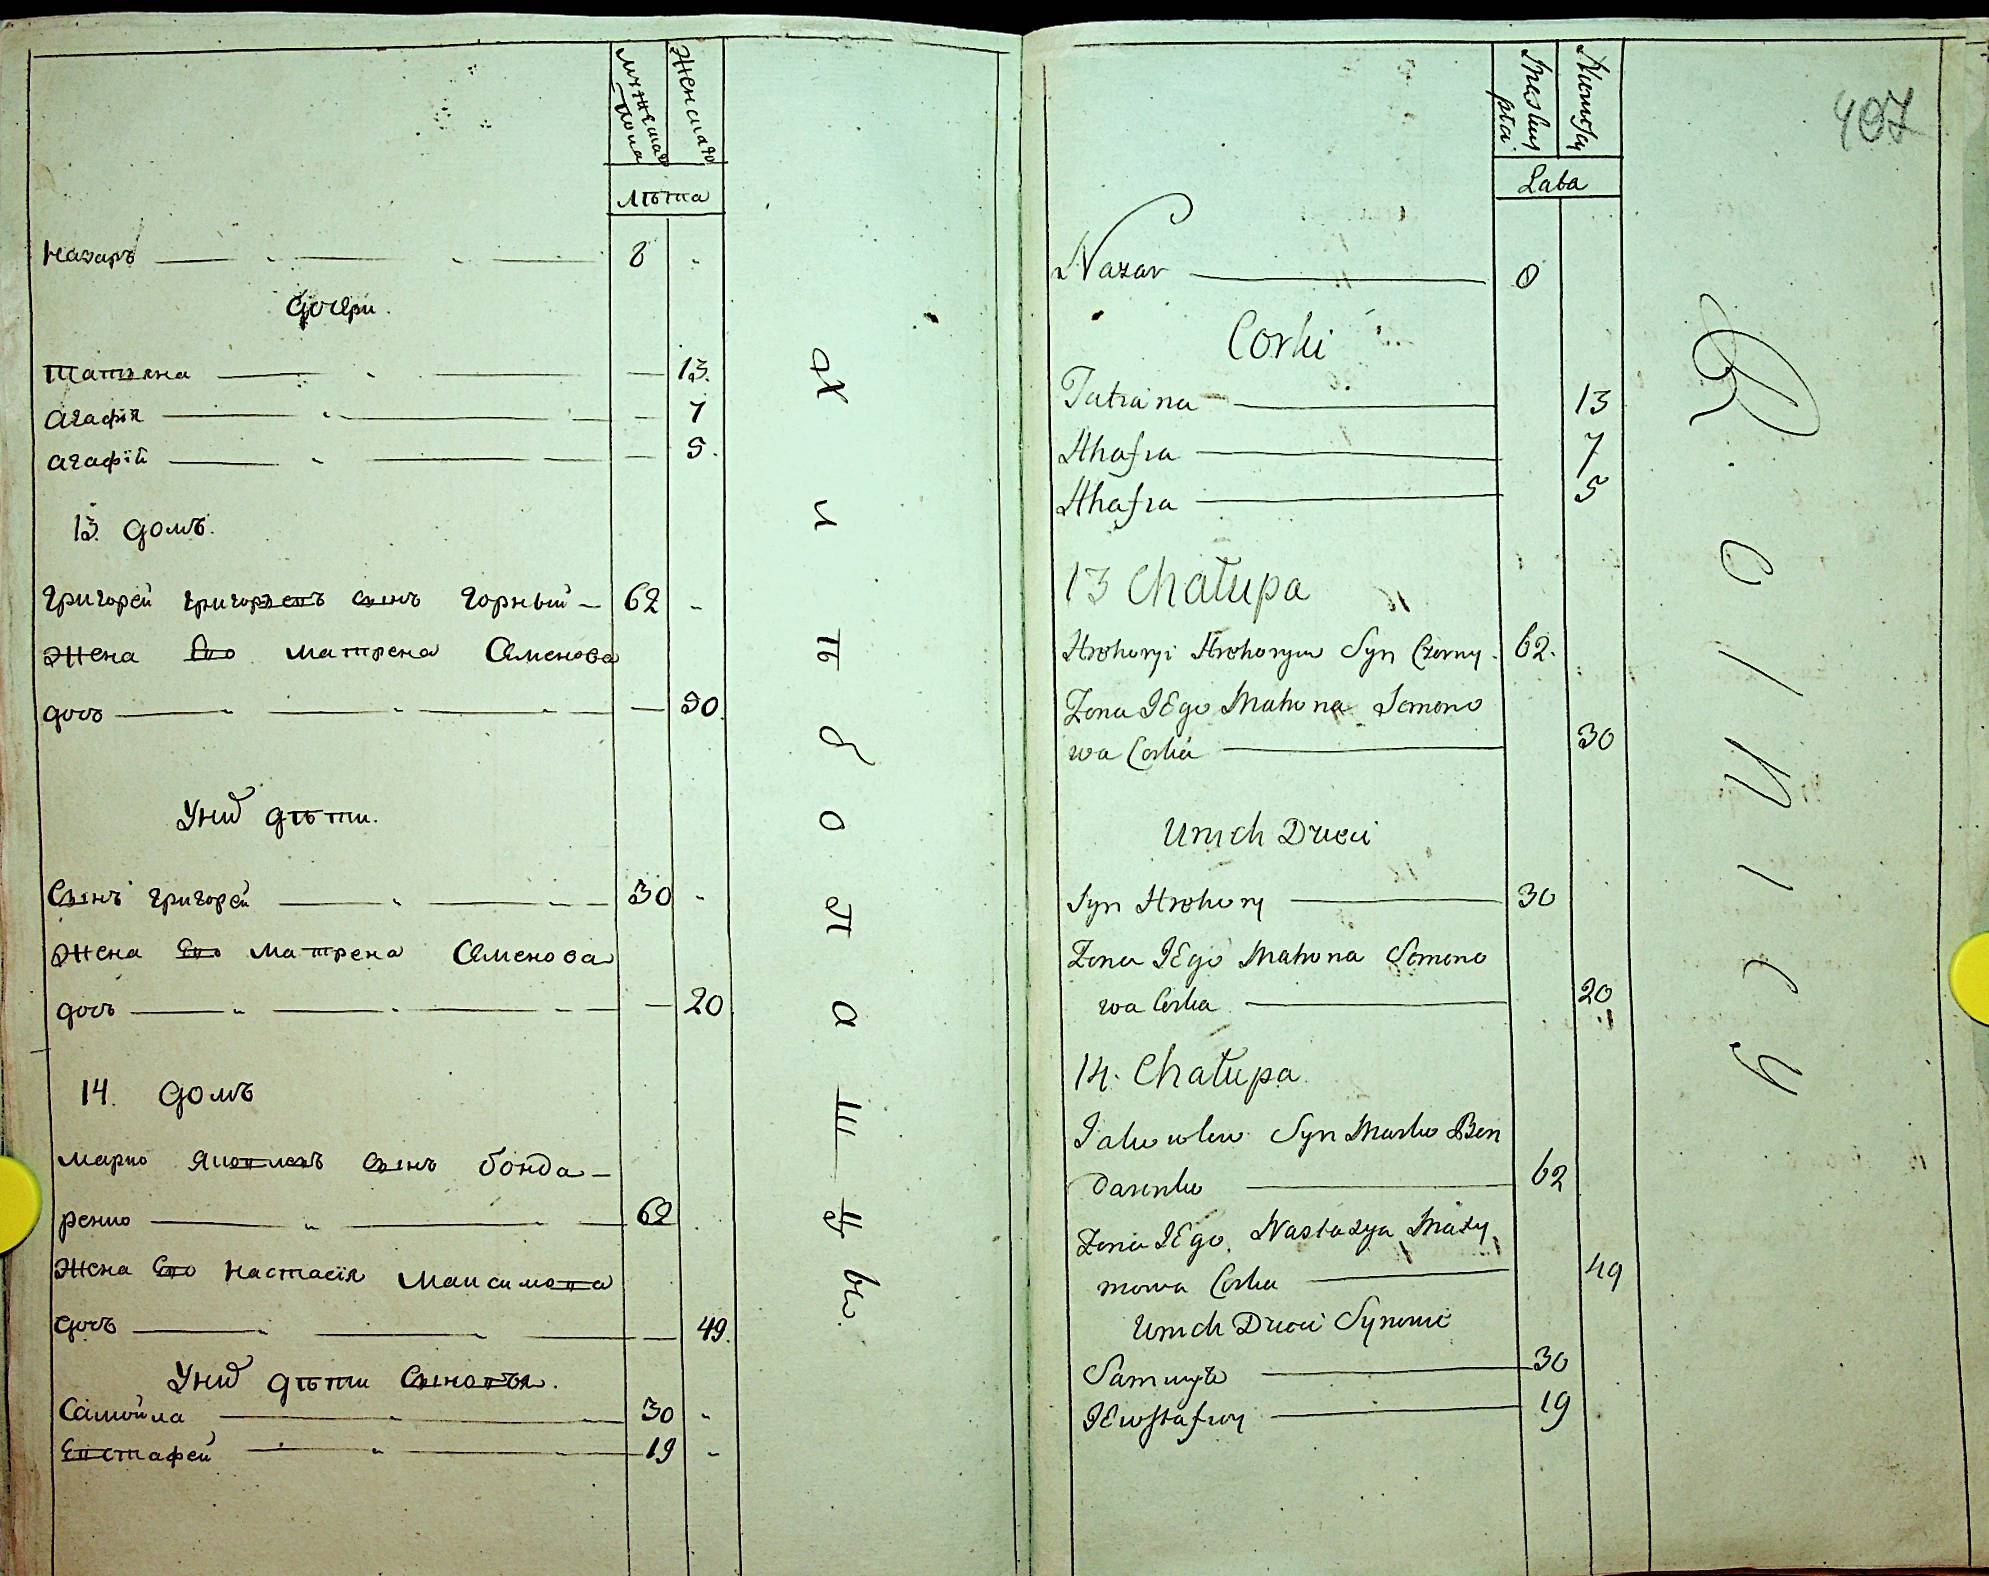 мужеска пола
Женска
лѣта
Назаръ — 8 -
дочери.
татьяна — 13.
агафїя — 7
агафїй — 5.
13. домъ.
григорей григорьевъ сынъ чорный — 62 -
жена Его матрена Семенова
дочь — 30.
Унихъ дѣти.
Сынъ григорей — 30 -
жена Его матрена Семенова
дочь — 20
14. домъ
марко яковлевъ сынъ бонда-
ренко — 62
жена Его настасїя максимова
дочь — 49.
Унихъ дѣти Сыновья.
Самойла — 30 -
Евстафей — 19 -
хлѣбопашцы.
407
Męskiey płci
Niewiesky
Lata
Nazar — 8
Corki
Tatiana — 13
Ahafia — 7
Ahafia — 5
13 Chałupa
Hrehoryi Hrehoryiw Syn Czorny. 62.
Zona IEgo Matrona Semeno
wa Corka — 30
Unich Dzieci
Syn Hrehory — 30
Zona IEgo Matrona Semeno
wa Corka — 20
14. Chałupa
Jakowlew Syn Marko Bon
darenko — 62
Zona IEgo Nastazya Maxy
mowa Corka — 49
Unich Dzieci Synowie
Samuyło — 30
IEwstafiey — 19
Rolnicy